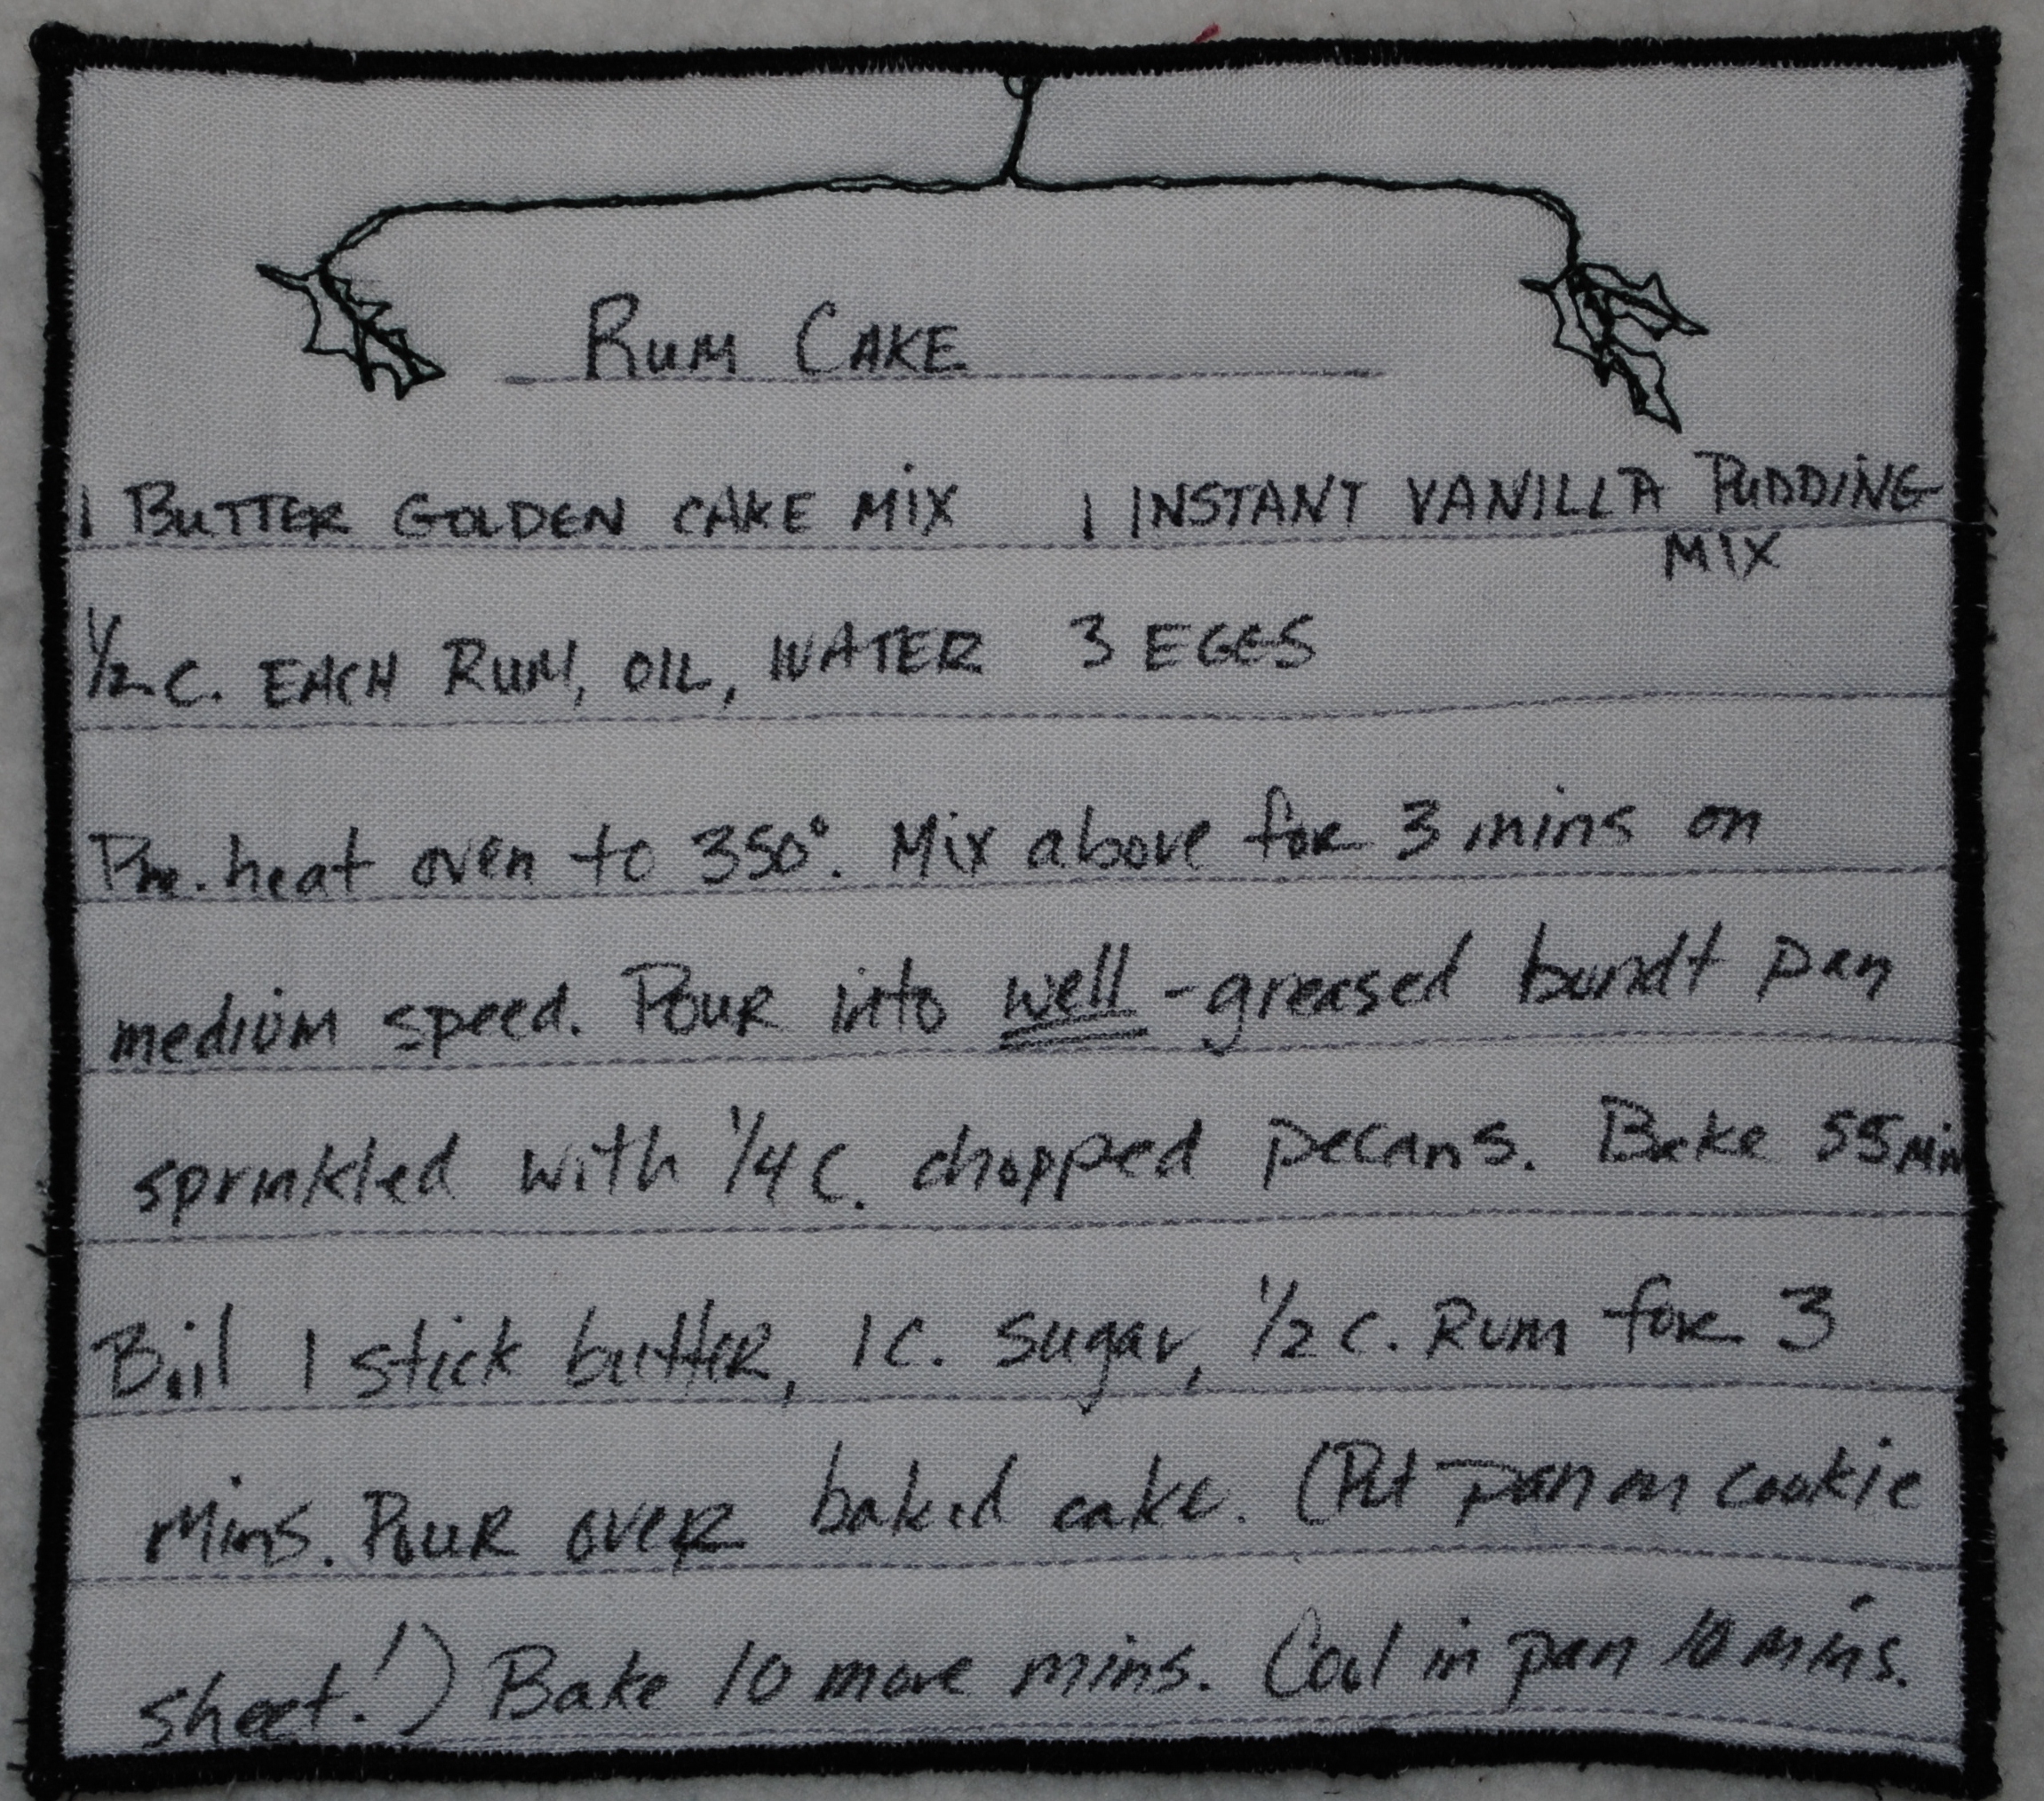 RUM CAKE
1 BUTTER GOLDEN CAKE MIX 1 INSTANT VANILLA PUDDING
MIX
1/2 C. EACH RUM, OIL, WATER 3 EGGS
Pre.heat oven to 350°. Mix above for 3 mins on
medium speed. Pour into well-greased bundt pan
sprinkled with 1/4 C. chopped pecans. Bake 55 min
Boil 1 stick butter, 1 C. sugar, 1/2 C. Rum for 3
mins. Pour over baked cake. (Put pan on cookie
sheet!) Bake 10 more mins. Cool in pan 10 mins.